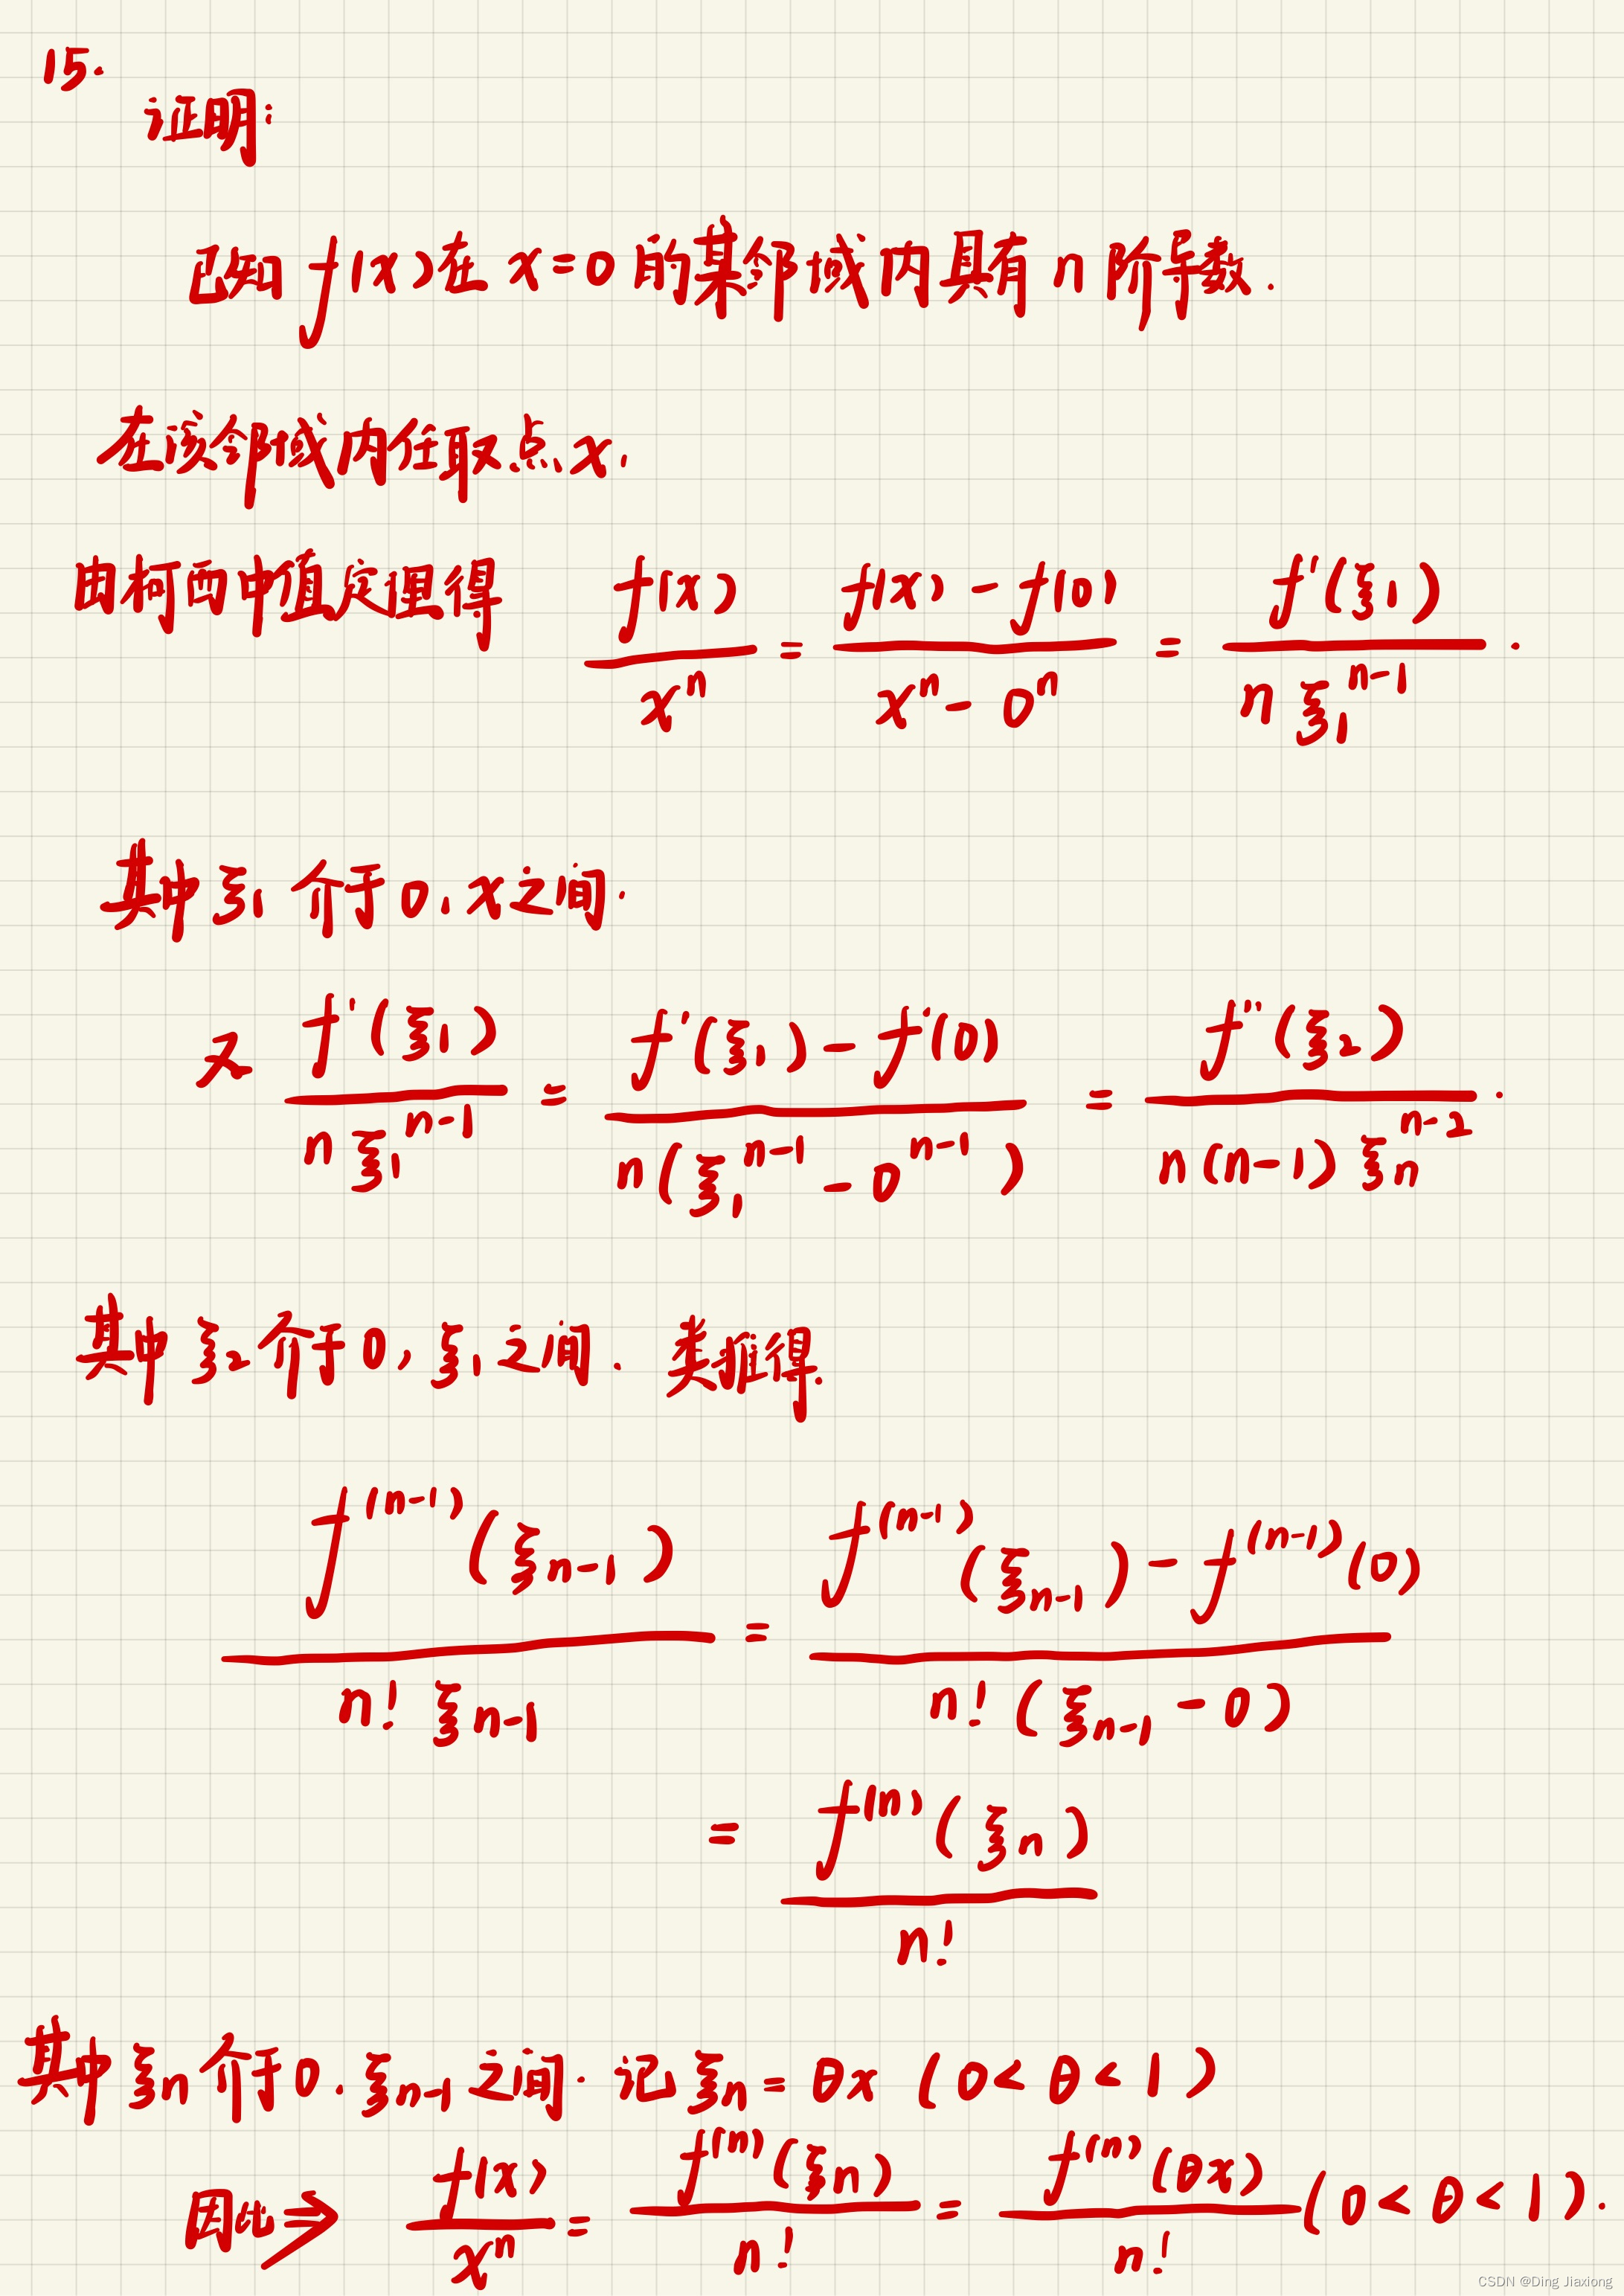 15.
证明:
已知 f(x) 在 x=0 的某邻域内具有 n 阶导数.
在该邻域内任取点 x,
由柯西中值定理得 f(x)/x^n = (f(x) - f(0))/(x^n - 0^n) = f'(ξ₁)/(n ξ₁^(n-1)).
其中 ξ₁ 介于 0, x 之间.
又 f'(ξ₁)/(n ξ₁^(n-1)) = (f'(ξ₁) - f'(0))/(n(ξ₁^(n-1) - 0^(n-1))) = f''(ξ₂)/(n(n-1) ξₙ^(n-2)).
其中 ξ₂ 介于 0, ξ₁ 之间. 类推得.
f^(n-1)(ξ_(n-1))/(n! ξ_(n-1)) = (f^(n-1)(ξ_(n-1)) - f^(n-1)(0))/(n! (ξ_(n-1) - 0))
= f^(n)(ξₙ)/n!
其中 ξₙ 介于 0, ξ_(n-1) 之间. 记 ξₙ = θx (0 < θ < 1)
因此 ⇒ f(x)/x^n = f^(n)(ξₙ)/n! = f^(n)(θx)/n! (0 < θ < 1).
CSDN @Ding Jiaxiong